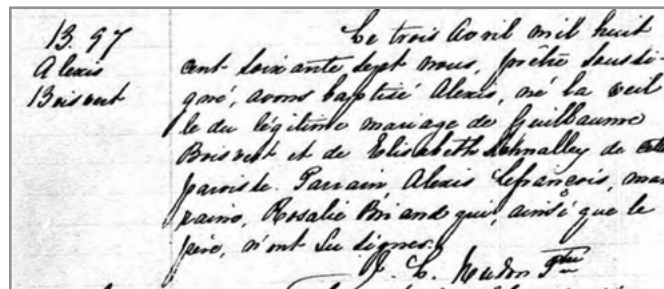 B. 97
Alexis
Boisvert
Le trois Avril mil huit
cent soixante sept nous, prêtre soussi-
gné, avons baptisé Alexis, né la veil
le du légitime mariage de Guillaume
Boisvert et de Elisabeth de cette
paroisse. Parrain, Alexis Lefrançois, mar
raine, Rosalie Briand qui, ainsi que le
père, n'ont su signer.
Ptre